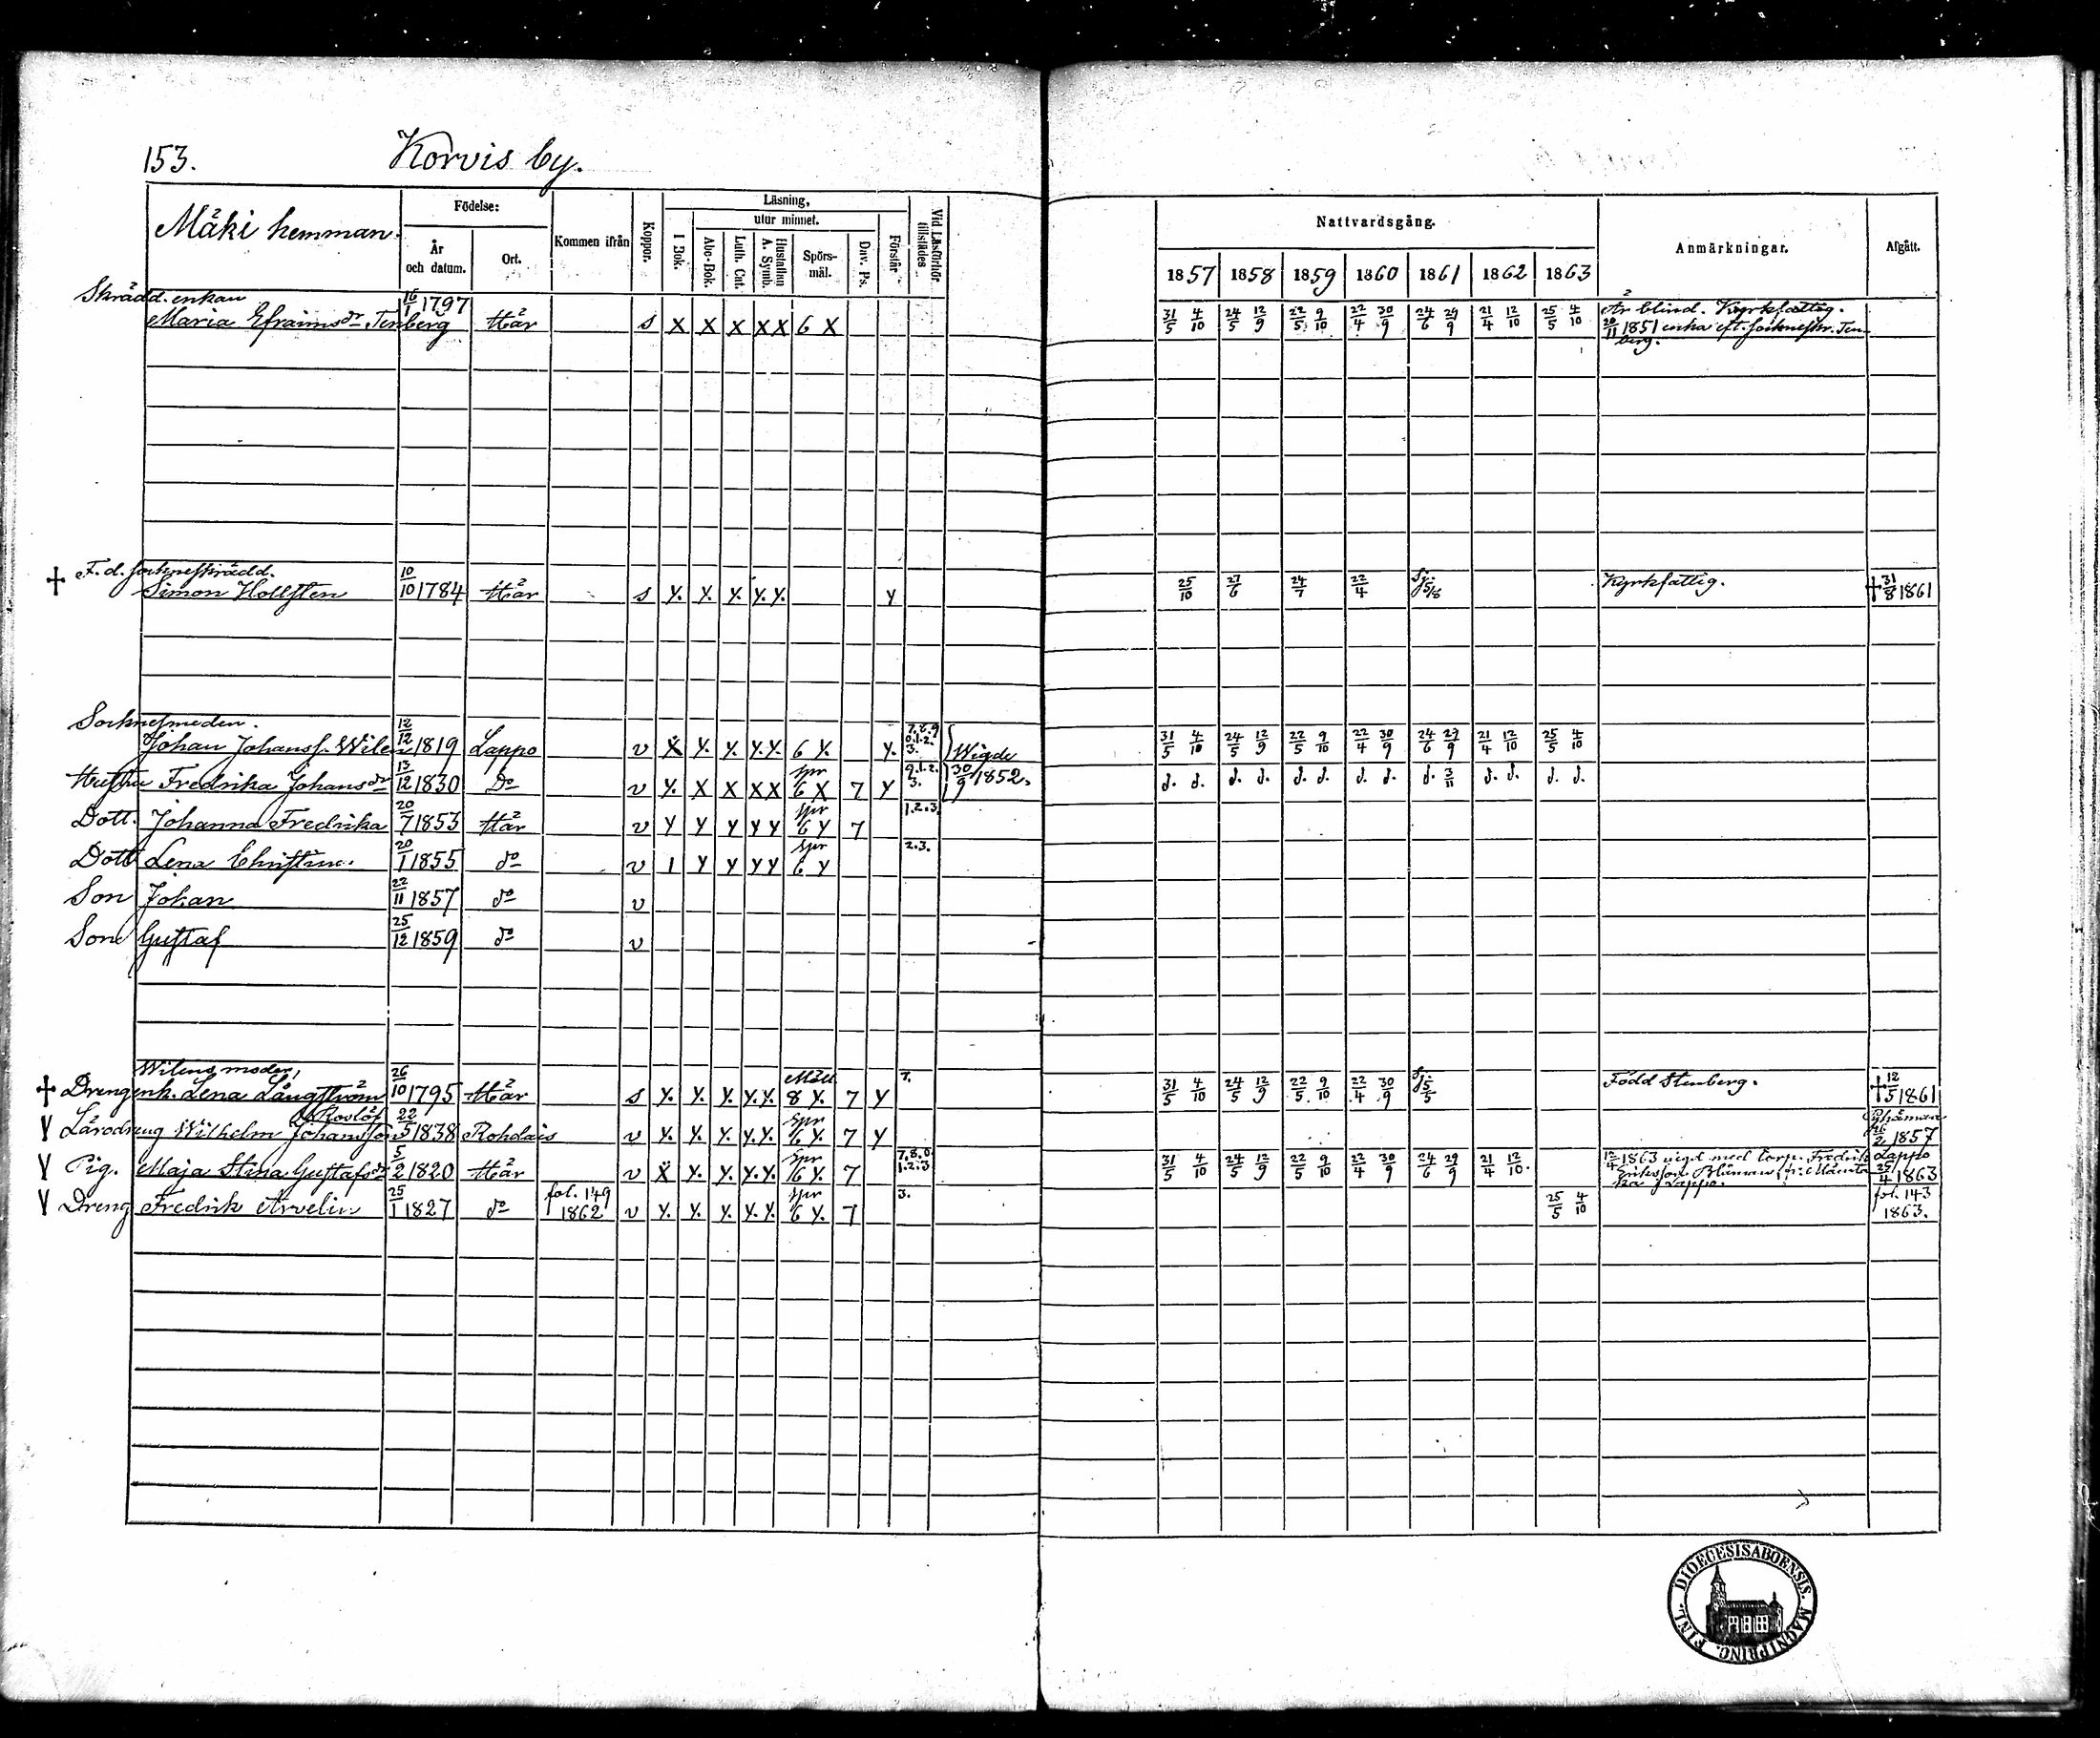 153. Korvis by.
Mäki hemman.
Födelse:
År och datum.
Ort.
Kommen ifrån
Koppor.
Läsning,
I Bok.
utur minnet.
Abc-Bok.
Luth. Cat.
Hustaflan A. Symb.
Spörs-mål.
Dav. Ps.
Förstår
Vid Läsförhör tillstädes
Nattvardsgång.
1857 1858 1859 1860 1861 1862 1863
Anmärkningar.
Afgått.
Skrädd. enkan 16/1 1797
Maria Efraimsdr Tenberg Här s X X X X X 6 X 31/5 4/10 24/5 12/9 22/5 9/10 22/4 30/9 24/6 29/9 21/4 12/10 25/5 4/10 Är blind. Kyrkfattig.
20/11 1851 enka eft. sockneskr. Ten-
berg.
† F. d. sockneskrädd.
Simon Hollsten 10/10 1784 Här s Y. Y. Y. Y. Y. Y 25/10 27/6 24/7 22/4 Sj. 5/8 Kyrkfattig. † 31/8 1861
Socknesmeden.
Johan Johanss. Wilen 12/12 1819 Lappo v X Y. Y. Y. Y. 6 Y. Y. 7.8.9 0.1.2. 3. Wigde 31/5 4/10 24/5 12/9 22/5 9/10 22/4 30/9 24/6 29/9 21/4 12/10 25/5 4/10
Hustru Fredrika Johansdr 13/12 1830 Do v Y. X X X X Spr 6 X 7 Y 9.1.2. 3. 30/9 1852. d. d. d. d. d. d. d. d. d. 3/11 d. d. d. d.
Dott. Johanna Fredrika 20/7 1853 Här v Y Y Y Y Y Spr 6 Y 7 1.2.3.
Dott Lena Christina. 20/1 1855 do v 1 Y Y Y Y Spr 6 Y 2.3.
Son Johan 22/11 1857 do v
Son Gustaf 25/12 1859 do v
Wilens moder,
† Drengenk. Lena Långström 26/10 1795 Här s Y. Y. Y. Y. Y. 8 Y. 7 Y 7. 31/5 4/10 24/5 12/9 22/5 9/10 22/4 30/9 Sj 5/5 Född Stenberg. † 12/5 1861
Y Lärodreng Wilhelm Johansson 22/5 1838 Rohdais v Y. Y. Y. Y. Y. Spr 6 Y. 7 Y 2 1857
Y Pig. Maja Stina Gustafsdr 5/2 1820 Här v X Y. Y. Y. Y. Spr 6 Y. 7 7.8.0 1.2.3 31/5 4/10 24/5 12/9 22/5 9/10 22/4 30/9 24/6 29/9 21/4 12/10. 12/4 1863 vigd med torp. Fredrik
Eriksson Lappo. Lappo 25/4 1863
Y Dreng Fredrik Arvelin 25/1 1827 do fol. 149 1862 v Y. Y. Y. Y. Y. Spr 6 Y. 7 3. 25/5 4/10 fol. 143 1863.
DIOECESIS ABOENSIS. MAGNI PRINC. FINL.